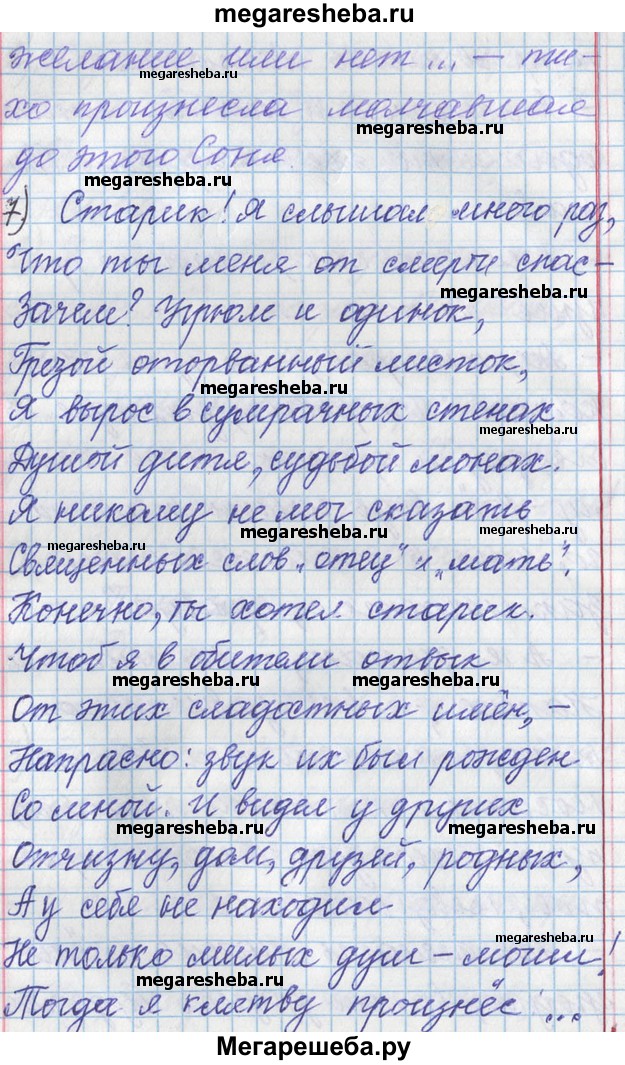 Megaresheba.ru
желание или нет ... – ти-
megaresheba.ru
хо произнесла молчавшая
megaresheba.ru
до этого Соня.
megaresheba.ru
7) Старик! Я слышал много раз,
Что ты меня от смерти спас –
megaresheba.ru
Зачем? Угрюм и одинок,
Грозой оторванный листок,
megaresheba.ru
Я вырос в сумрачных стенах
megaresheba.ru
Душой дитя, судьбой монах.
Я никому не мог сказать
megaresheba.ru megaresheba.ru
megaresheba.ru
Священных слов „отец" и „мать".
Конечно, ты хотел старик.
Чтоб я в обители отвык
megaresheba.ru megaresheba.ru
От этих сладостных имён, –
Напрасно: звук их был рожден
Со мной. И видел у других
megaresheba.ru megaresheba.ru
Отчизну, дом, друзей, родных,
А у себя не находил
megaresheba.ru
Не только милых душ – могил!
megaresheba.ru
Тогда я клятву произнёс ...
Мегарешеба.ру